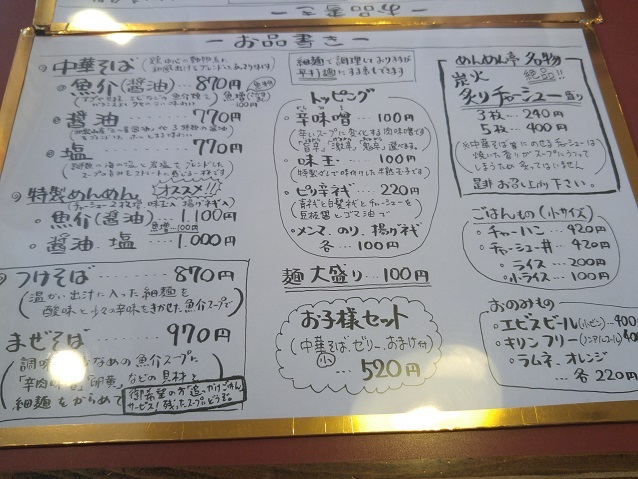 ー お品書き ー
中華そば
魚介(醤油)… 870円
魚増
100円
醤油 … 770円
塩 … 770円
特製めんめん オススメ!!
魚介(醤油)… 1,100円
魚増…100円
醤油・塩 … 1,000円
つけそば … 870円
(温かい出汁に入った細麺を
酸味と少々の辛味をきかせた魚介スープで)
まぜそば … 970円
魚介スープに
「辛肉 」「卵黄」などの具材と
細麺をからめて
御希望の方"追いかけごはん"
サービス!残ったスープにどうぞ。
細麺で調理しておりますが
平打ち麺にする事もできます
トッピング
辛味噌 … 100円
辛いスープに変化する肉味噌です
味玉 … 100円
特製ダレで味付けした半熟玉子です
ピリ辛ネギ … 220円
豆板醤とゴマ油で
メンマ、のり、揚げネギ
各 … 100円
麺大盛り … 100円
お子様セット
(中華そば、ゼリー、おまけ付)
小
… 520円
めんめん亭 名物
炭火 絶品!!
炙りチャーシュー盛り
3枚 … 240円
5枚 … 400円
※中華そばにのせるチャーシューは
焼いた香りがスープにうつって
しまうため 炙ってはいません
是非お召し上がり下さい。
ごはんもの(小サイズ)
チャーハン … 420円
チャーシュー丼 … 420円
ライス … 200円
小ライス … 100円
おのみもの
エビスビール(小ビン)…400
キリンフリー(ノンアルコール)400
ラムネ、オレンジ
… 各220円